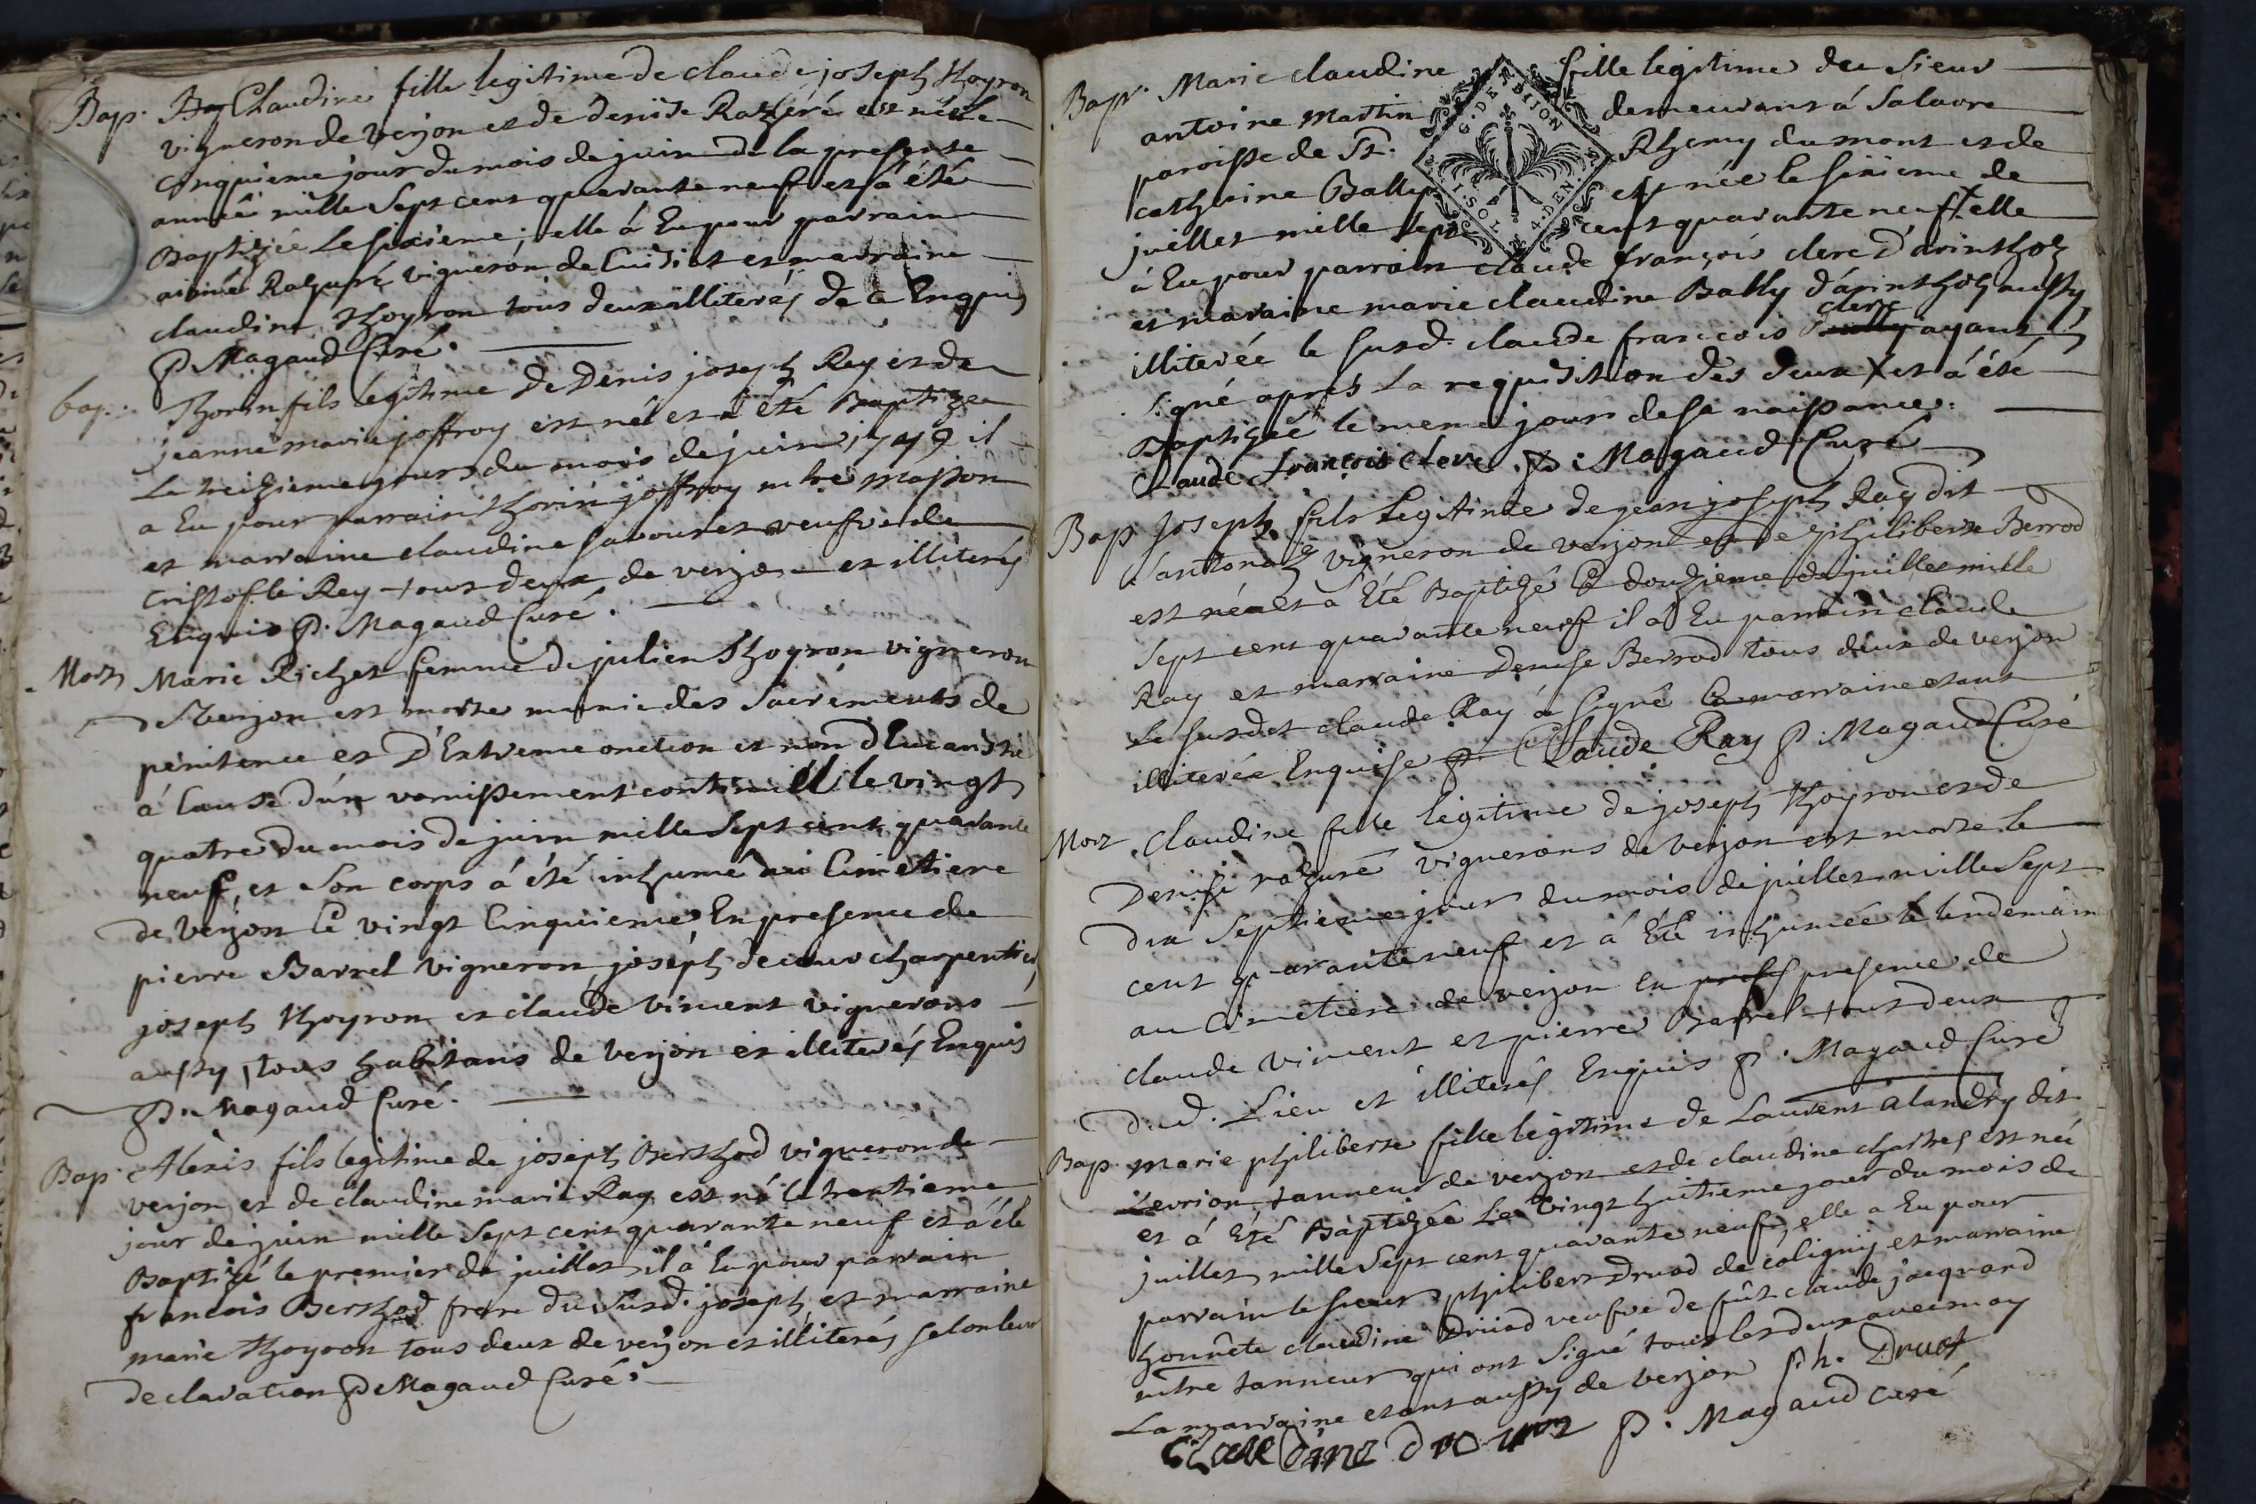 Bap. Claudine fille legitime de claude joseph Thoyron
vigneron de verjon et de denise Razuré est née le
cinquieme jour du mois de juin de la presente
année mille sept cent quarante neuf et á été
Baptizée le sixieme; elle á Eu pour parrain
aimé Razuré vigneron de Cuisiat et marraine
claudine Thoyron tous deux illiterés de ce Enquis
P. Magaud Curé.
bap. Thorin fils légitime de Denis joseph Rey et de
jeanne marie joffroy est né et a été Baptizé
le treizieme jour du mois de juin 1749 il
a Eu pour parrain Thorin joffroy mtre masson
et marraine claudine savouret veufve de
cristofle Rey tous deux de verjon et illiterés
Enquis P. Magaud Curé.
Mort Marie Richet femme de julien Thoyron vigneron
de Verjon est morte munie des Sacréments de
penitence et D'Extreme onction et non d'Eucaristie
á Cause d'ún vomissement continuel le vingt
quatre du mois de juin mille Sept cent quarante
neuf, et son corps á été inhumé au Cimetiere
de Verjon le vingt Cinquieme En presence de
pierre Barrel vigneron, joséph decour charpentier,
joseph Thoyron et claude vincent vignerons
aussy, tous habitans de verjon et illiterés Enquis
P. Magaud Curé.
Bap. Alexis fils legitime de joséph Berthod vigneron de
verjon et de claudine marie Ray est né le trentieme
jour de juin mille Sept cent quarante neuf et á été
Baptizé le premier de juillet il á Eu pour parrain
francois Berthod frere du Susd. joseph et marraine
marie Thoyron tous deux de verjon et illiterés selon leur
declaration P Magaud Curé.
Bap. Marie claudine fille legitime du Sieur
antoine Martin demeurant á Salavre
paroisse de St. Rhemy du mont et de
catherine Bally est née le sixieme de
juillet mille sept cent quarante neuf + elle
á Eu pour parrain claude françois clerc D'arinthoz
et maraine marie claudine Bally d'árinthoz aussy
clerc
illiterée le susd. claude francois Bally ayant
signé apres la requisition des deux X et á été
Baptizée le meme jour de sa naissance.
Claude francois clerc. P. Magaud Curé
G. DE DIJON
1. SOL 4. DEN.
Bap Joseph fils Legitime de jean joseph Ray dit
santonaz vigneron de verjon et de philiberte Berrod
est né et á Eté Baptizé le douzieme de juillet mille
Sept cent quarante neuf il á Eu parrain claude
Ray et marraine Denise Berrod tous deux de verjon
le susdet claude Ray á signé la marraine etant
illiterée Enquise P. Claude Ray P. Magaud Curé
Mort Claudine fille legitime de joseph Thoyron et de
Denise razuré vignerons de verjon est morte le
dix Septieme jour du mois de juillet mille Sept
cent quarante neuf et á Eté inhumée le lendemain
au Cimetiere de verjon en presence de
claude vincent et pierre Barrel tous deux
dud. Lieu et illiterés Enquis P. Magaud Curé
Bap. marie philiberte fille legitime de Laurent alandry dit
Levrion tanneur de verjon et de claudine chastres est née
et á Eté Baptizée Le vingt huitieme jour du mois de
juillet mille Sept cent quarante neuf, elle a Eu pour
parrain le sieur philibert Druod de coligny et marraine
honnête claudine Druod veufve de fût claude jacquard
mtre tanneur qui ont Signé tous les deux avec moy
La marraine etant aussy de verjon Ph. Druot
claudine P. Magaud curé